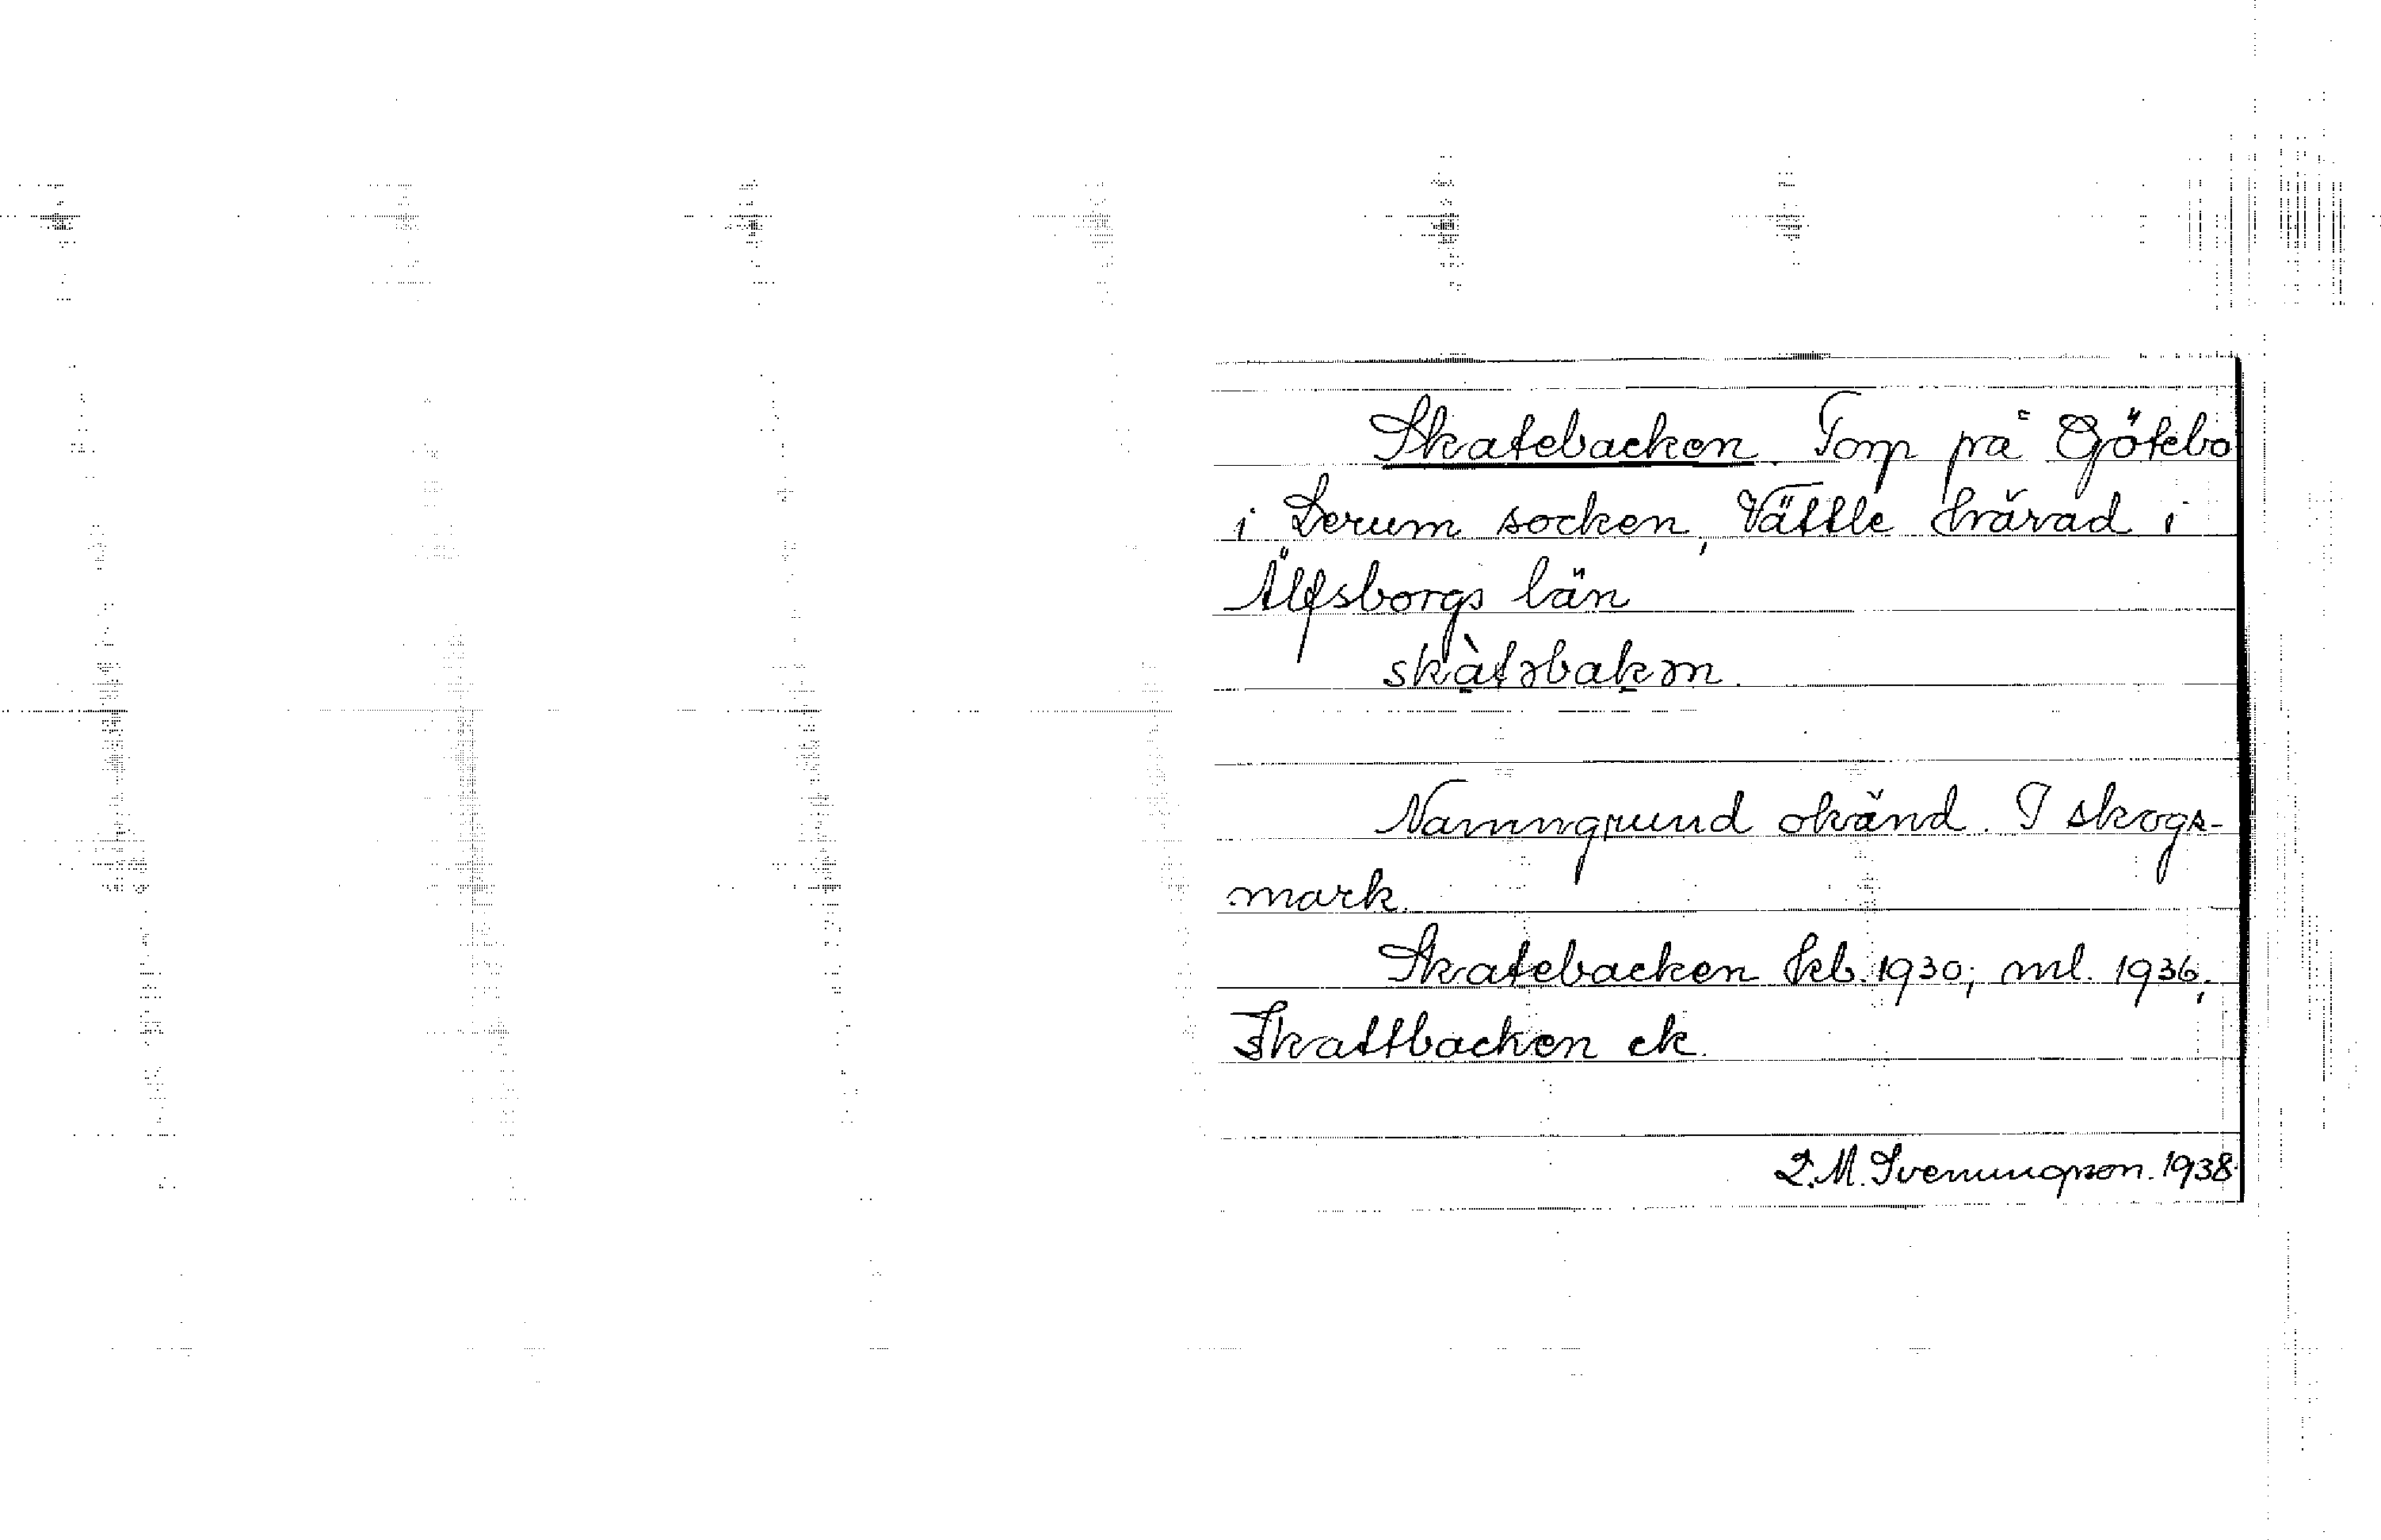 Skatebacken. Torp på Götebo
i Lerum socken, Vättle härad i
Älfsborgs län
skàtəbakən.
Namngrund okänd. I skogs-
mark.
Skatebacken kb. 1930; ml. 1936;
Skattbacken ek.
L.M. Svenungsson. 1938